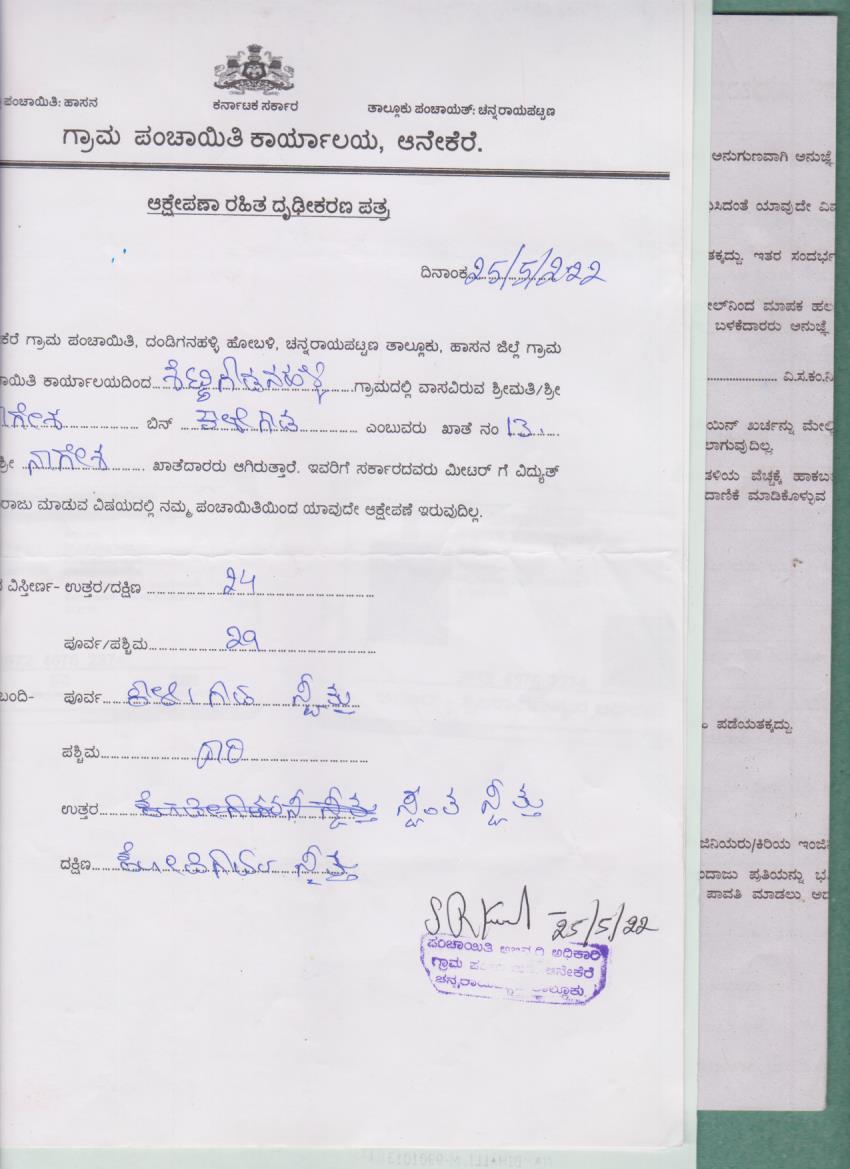 ಪಂಚಾಯಿತಿ: ಹಾಸನ
ಕರ್ನಾಟಕ ಸರ್ಕಾರ
ತಾಲ್ಲೂಕು ಪಂಚಾಯತ್: ಚನ್ನರಾಯಪಟ್ಟಣ
ಗ್ರಾಮ ಪಂಚಾಯಿತಿ ಕಾರ್ಯಾಲಯ, ಆನೇಕೆರೆ.
ಆಕ್ಷೇಪಣಾ ರಹಿತ ದೃಢೀಕರಣ ಪತ್ರ
ದಿನಾಂಕ 25/5/2022
ಕೆರೆ ಗ್ರಾಮ ಪಂಚಾಯಿತಿ, ದಂಡಿಗನಹಳ್ಳಿ ಹೋಬಳಿ, ಚನ್ನರಾಯಪಟ್ಟಣ ತಾಲ್ಲೂಕು, ಹಾಸನ ಜಿಲ್ಲೆ ಗ್ರಾಮ
ಾಯಿತಿ ಕಾರ್ಯಾಲಯದಿಂದ ಶೆಟ್ಟಿಗೌಡನಹಳ್ಳಿ ಗ್ರಾಮದಲ್ಲಿ ವಾಸವಿರುವ ಶ್ರೀಮತಿ/ಶ್ರೀ
ಾಗೇಶ ಬಿನ್ ಎಂಬುವರು ಖಾತೆ ನಂ 13
ಶ್ರೀ ನಾಗೇಶ ಖಾತೆದಾರರು ಆಗಿರುತ್ತಾರೆ. ಇವರಿಗೆ ಸರ್ಕಾರದವರು ಮೀಟರ್ ಗೆ ವಿದ್ಯುತ್
ರಾಜು ಮಾಡುವ ವಿಷಯದಲ್ಲಿ ನಮ್ಮ ಪಂಚಾಯಿತಿಯಿಂದ ಯಾವುದೇ ಆಕ್ಷೇಪಣೆ ಇರುವುದಿಲ್ಲ.
ವಿಸ್ತೀರ್ಣ- ಉತ್ತರ/ದಕ್ಷಿಣ 24
ಪೂರ್ವ/ಪಶ್ಚಿಮ 29
ಬಂದಿ- ಪೂರ್ವ ಸ್ವತ್ತು
ಪಶ್ಚಿಮ ದಾರಿ
ಉತ್ತರ ಸ್ವಂತ ಸ್ವತ್ತು
ದಕ್ಷಿಣ ಸ್ವತ್ತು
25/5/22
ಪಂಚಾಯಿತಿ ಅಭಿವೃದ್ಧಿ ಅಧಿಕಾರಿ
ಗ್ರಾಮ ಪಂಚಾಯಿತಿ ಆನೇಕೆರೆ
ಚನ್ನರಾಯಪಟ್ಟಣ ತಾಲ್ಲೂಕು
ಅನುಗುಣವಾಗಿ ಅನುಜ್ಞೆ
ಸಿದಂತೆ ಯಾವುದೇ ವಿ
ತಕ್ಕದ್ದು. ಇತರ ಸಂದರ್ಭ
ಲ್‌ನಿಂದ ಮಾಪಕ ಹಲ
ಬಳಕೆದಾರರು ಅನುಜ್ಞೆ
ವಿ.ಸ.ಕಂ.ನಿ
ಯಿನ್ ಖರ್ಚನ್ನು ಮೇಲ್ವಿ
ಲಾಗುವುದಿಲ್ಲ.
ತಳಿಯ ವೆಚ್ಚಕ್ಕೆ ಹಾಕಬ
ದಾಣಿಕೆ ಮಾಡಿಕೊಳ್ಳುವ
ಪಡೆಯತಕ್ಕದ್ದು.
ಜಿನಿಯರು/ಕಿರಿಯ ಇಂಜಿ
ಂದಾಜು ಪ್ರತಿಯನ್ನು ಭ
ಪಾವತಿ ಮಾಡಲು ಅದ